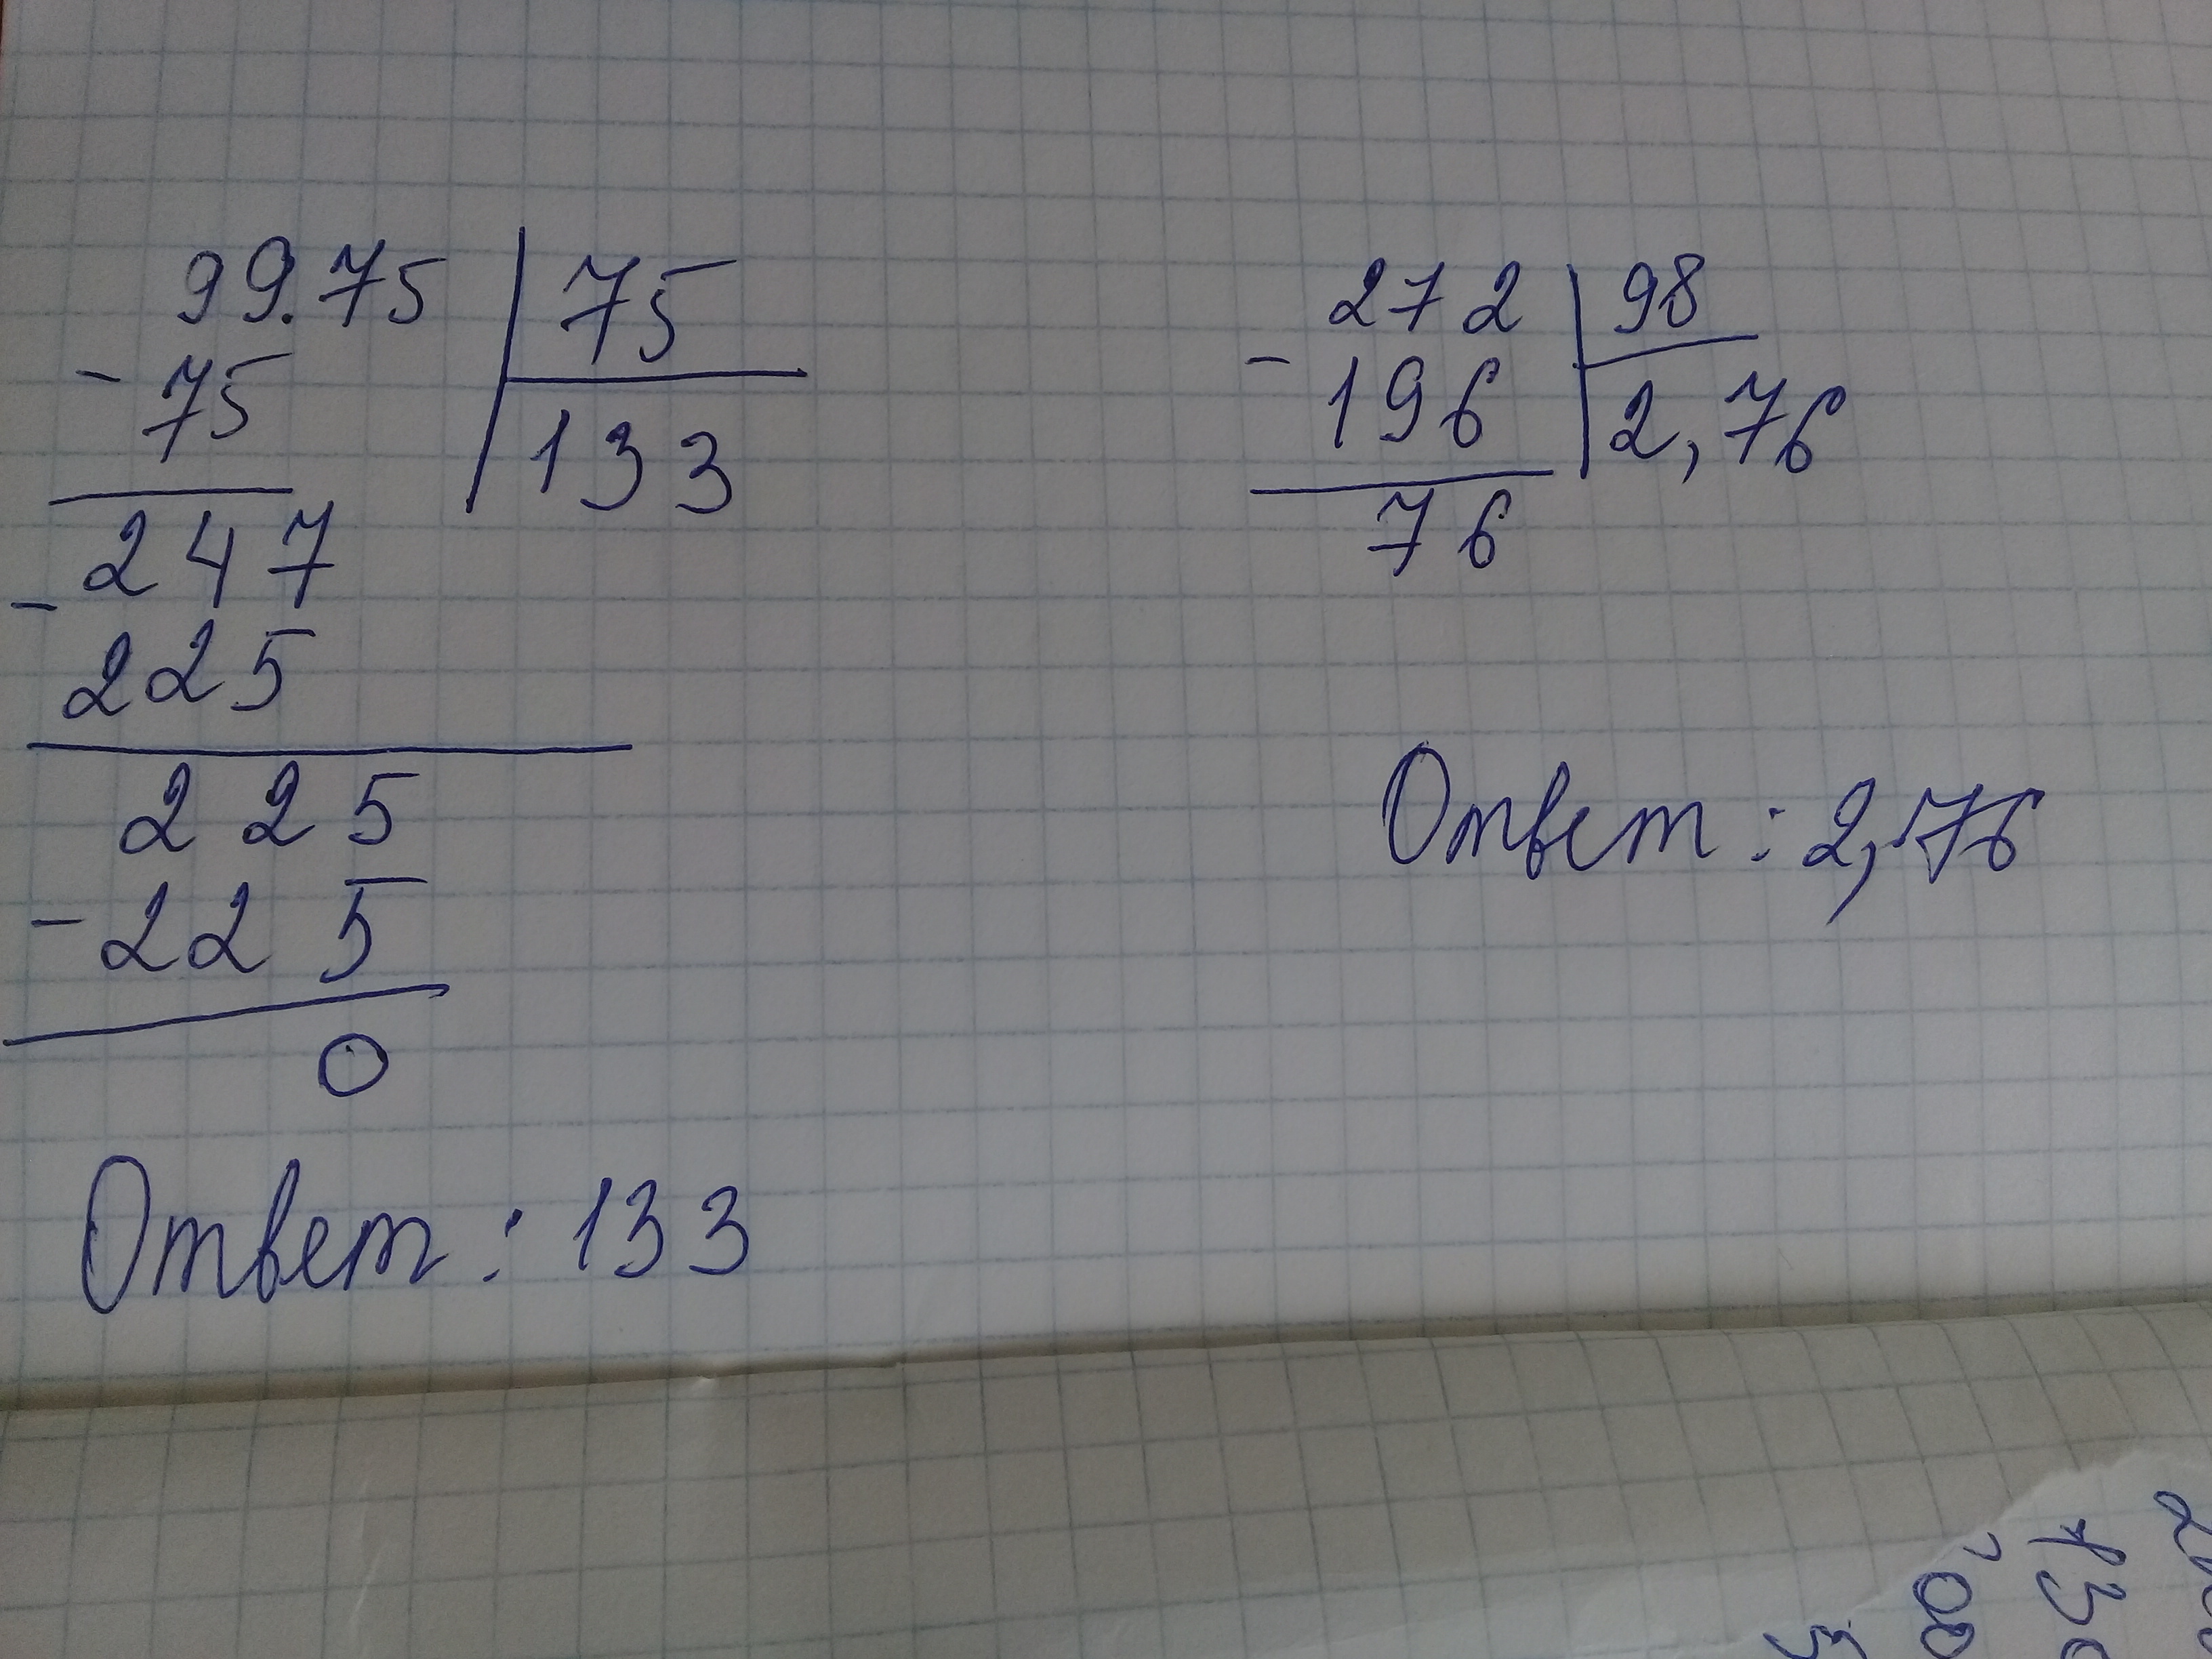 99.75 | 75
- 75
133
247
- 225
225
- 225
0
Ответ: 133
272 | 98
- 196
2,76
76
Ответ: 2,76